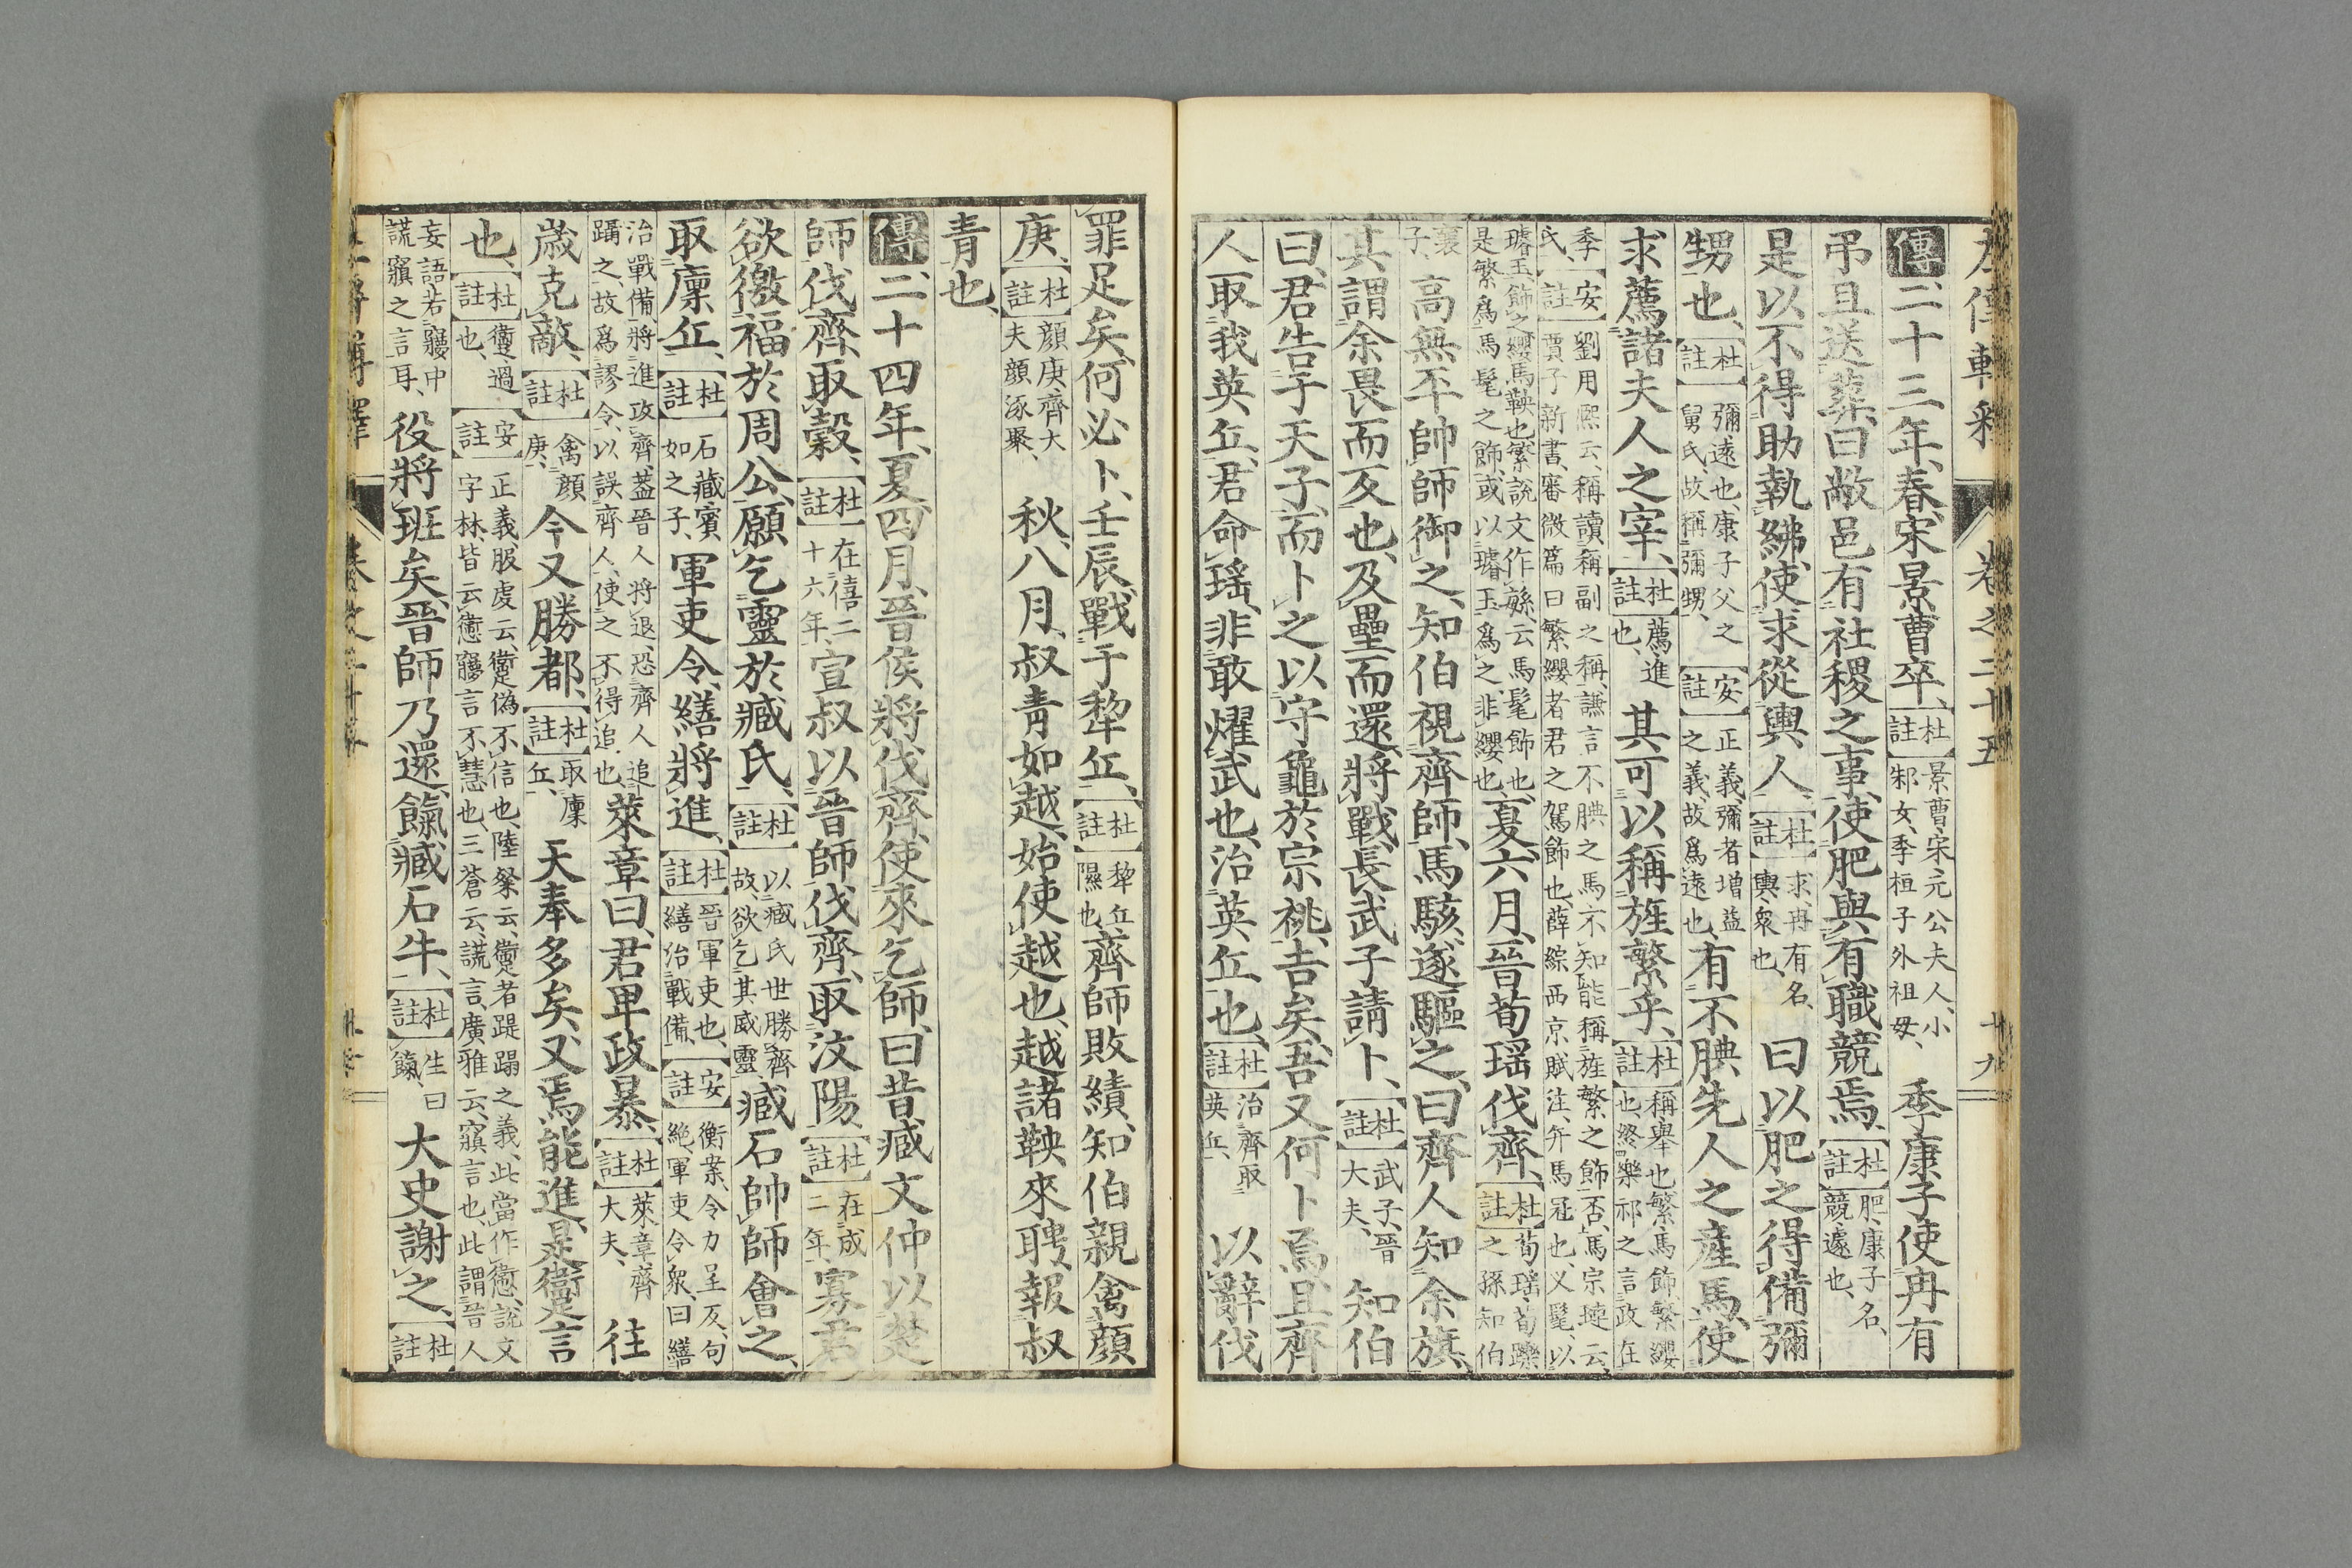 左傳輯釋 卷之二十五 十九
傳二十三年、春、宋景曹卒、【杜註】景曹、宋元公夫人、小邾女、季桓子外祖母、季康子使冉有
弔、且送葬、曰、敝邑有社稷之事、使肥與有職競焉、【杜註】肥、康子名、競、遽也、
是以不得助執紼、使求從輿人、【杜註】求、冉有名、輿、衆也、曰、以肥之得備彌
甥也、【杜註】彌、遠也、康子父之舅氏、故稱彌甥、【安註】正義、彌者增益之義、故爲遠也、有不腆先人之產馬、使
求薦諸夫人之宰、【杜註】薦、進也、其可以稱旌繁乎、【杜註】稱、舉也、繁、馬飾繁纓也、終樂祁之言、政在
季氏、【安註】劉用熙云、稱讀稱副之稱、謙言不腆之馬、不知能稱旌繁之飾否、馬宗璉云、賈子新書、審微篇曰、繁纓者君之駕飾也、薛綜西京賦注、弁馬冠也、叉髦、以
璿玉飾之、纓馬鞅也、繁說文作緐、云馬髦飾也、是繁爲馬髦之飾、或以璿玉爲之、非纓也、夏、六月、晉荀瑤伐齊、【杜註】荀瑤、荀躒之孫、知伯
襄子、高無丕帥師御之、知伯視齊師、馬駭、遂驅之、曰、齊人知余旗、
其謂余畏而反也、及壘而還、將戰、長武子請卜、【杜註】武子、晉大夫、知伯
曰、君告于天子、而卜之以守龜於宗祧、吉矣、吾又何卜焉、且齊
人取我英丘、君命瑤、非敢燿武也、治英丘也、【杜註】治齊取英丘、以辭伐
罪足矣、何必卜、壬辰、戰于犂丘、【杜註】犂丘、隰也、齊師敗績、知伯親禽顏
庚、【杜註】顏庚、齊大夫顏涿聚、秋、八月、叔青如越、始使越也、越諸鞅來聘、報叔
青也、
傳二十四年、夏、四月、晉侯將伐齊、使來乞師、曰、昔臧文仲以楚
師伐齊、取穀、【杜註】在僖二十六年、宣叔以晉師伐齊、取汶陽、【杜註】在成二年、寡君
欲徼福於周公、願乞靈於臧氏、【杜註】以臧氏世勝齊、故欲乞其威靈、臧石帥師會之、
取廩丘、【杜註】石、臧賓如之子、軍吏令繕、將進、【杜註】晉軍吏也、繕治戰備、【安註】衡案、令力呈反、句絕、軍吏令衆、曰繕
治戰備、將進攻齊、蓋晉人將退、恐齊人追躡之、故爲謬令、以誤齊人、使之不得追也、萊章曰、君卑政暴、【杜註】萊章、齊大夫、往
歲克敵、【杜註】禽顏庚、今又勝都、【杜註】取廩丘、天奉多矣、又焉能進、是躗言
也、【杜註】躗、過也、【安註】正義、服虔云、躗偽不信也、陸粲云、躗者踶蹋之義、此當作讆、說文字林、皆云、讆寱言不慧也、三蒼云、謊言、廣雅云、寱言也、此謂晉人
妄語、若寱中謊寱之言耳、役將班矣、晉師乃還、餼臧石牛、【杜註】生曰餼、大史謝之、【杜註】